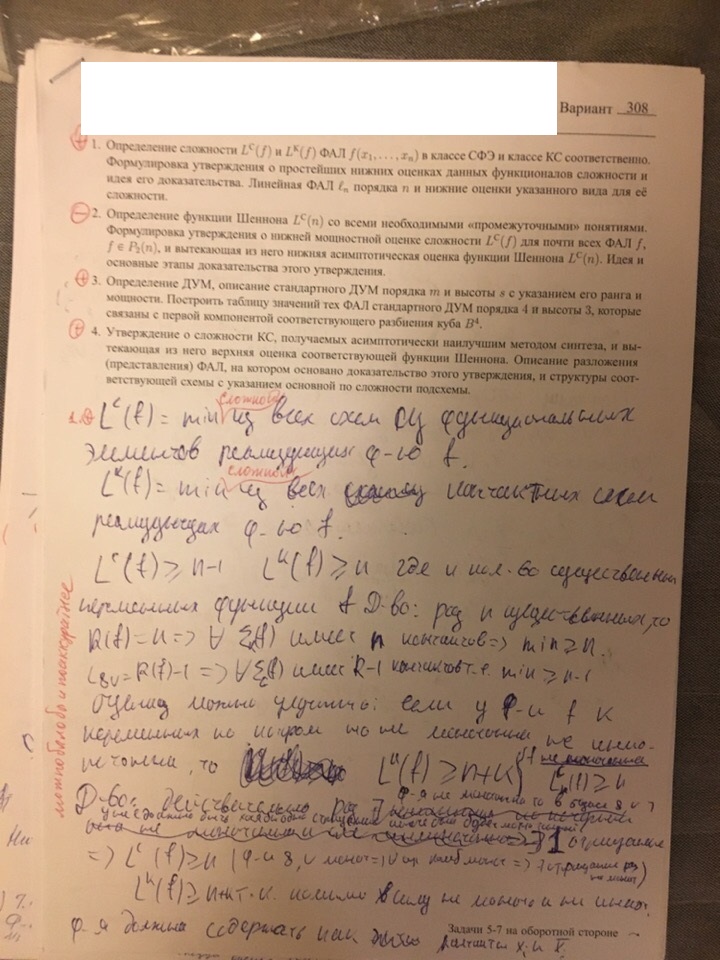 Вариант 308
1. Определение сложности L^C(f) и L^K(f) ФАЛ f(x₁, ..., xₙ) в классе СФЭ и классе КС соответственно.
Формулировка утверждения о простейших нижних оценках данных функционалов сложности и
идея его доказательства. Линейная ФАЛ ℓₙ порядка n и нижние оценки указанного вида для её
сложности.
2. Определение функции Шеннона L^C(n) со всеми необходимыми «промежуточными» понятиями.
Формулировка утверждения о нижней мощностной оценке сложности L^C(f) для почти всех ФАЛ f,
f ∈ P₂(n), и вытекающая из него нижняя асимптотическая оценка функции Шеннона L^C(n). Идея и
основные этапы доказательства этого утверждения.
3. Определение ДУМ, описание стандартного ДУМ порядка m и высоты s с указанием его ранга и
мощности. Построить таблицу значений тех ФАЛ стандартного ДУМ порядка 4 и высоты 3, которые
связаны с первой компонентой соответствующего разбиения куба B⁴.
4. Утверждение о сложности КС, получаемых асимптотически наилучшим методом синтеза, и вы-
текающая из него верхняя оценка соответствующей функции Шеннона. Описание разложения
(представления) ФАЛ, на котором основано доказательство этого утверждения, и структуры соот-
ветствующей схемы с указанием основной по сложности подсхемы.
сложность
1. L^C(f) = min из всех схем из функциональных
элементов реализующих ф-ю f.
сложность
L^K(f) = min из всех контактных схем
реализующих ф-ю f.
L^C(f) ≥ n-1 L^K(f) ≥ n где n кол-во существенных
переменных функции f Д-во: раз n существенных, то
R(f) = n => ∀ имеет n контактов => min ≥ n.
R(f)-1 => ∀ имеет R-1 т.е. min ≥ n-1
оценка можно улучшить: если у ф-и f k
переменных по которым она не монотонна не инмо-
нотонна, то L^K(f) ≥ n+k, f не монотонна L^C(f) ≥ n
Д-во: действительно раз
ф-я не монотонна то в
=> L^C(f) ≥ n (ф-и &, ∨ монот =>
L^K(f) ≥ n+k т.к.
ф-я должна содержать как контакты xᵢ и x̄ᵢ
можно было бы и поаккуратнее
Задачи 5-7 на оборотной стороне